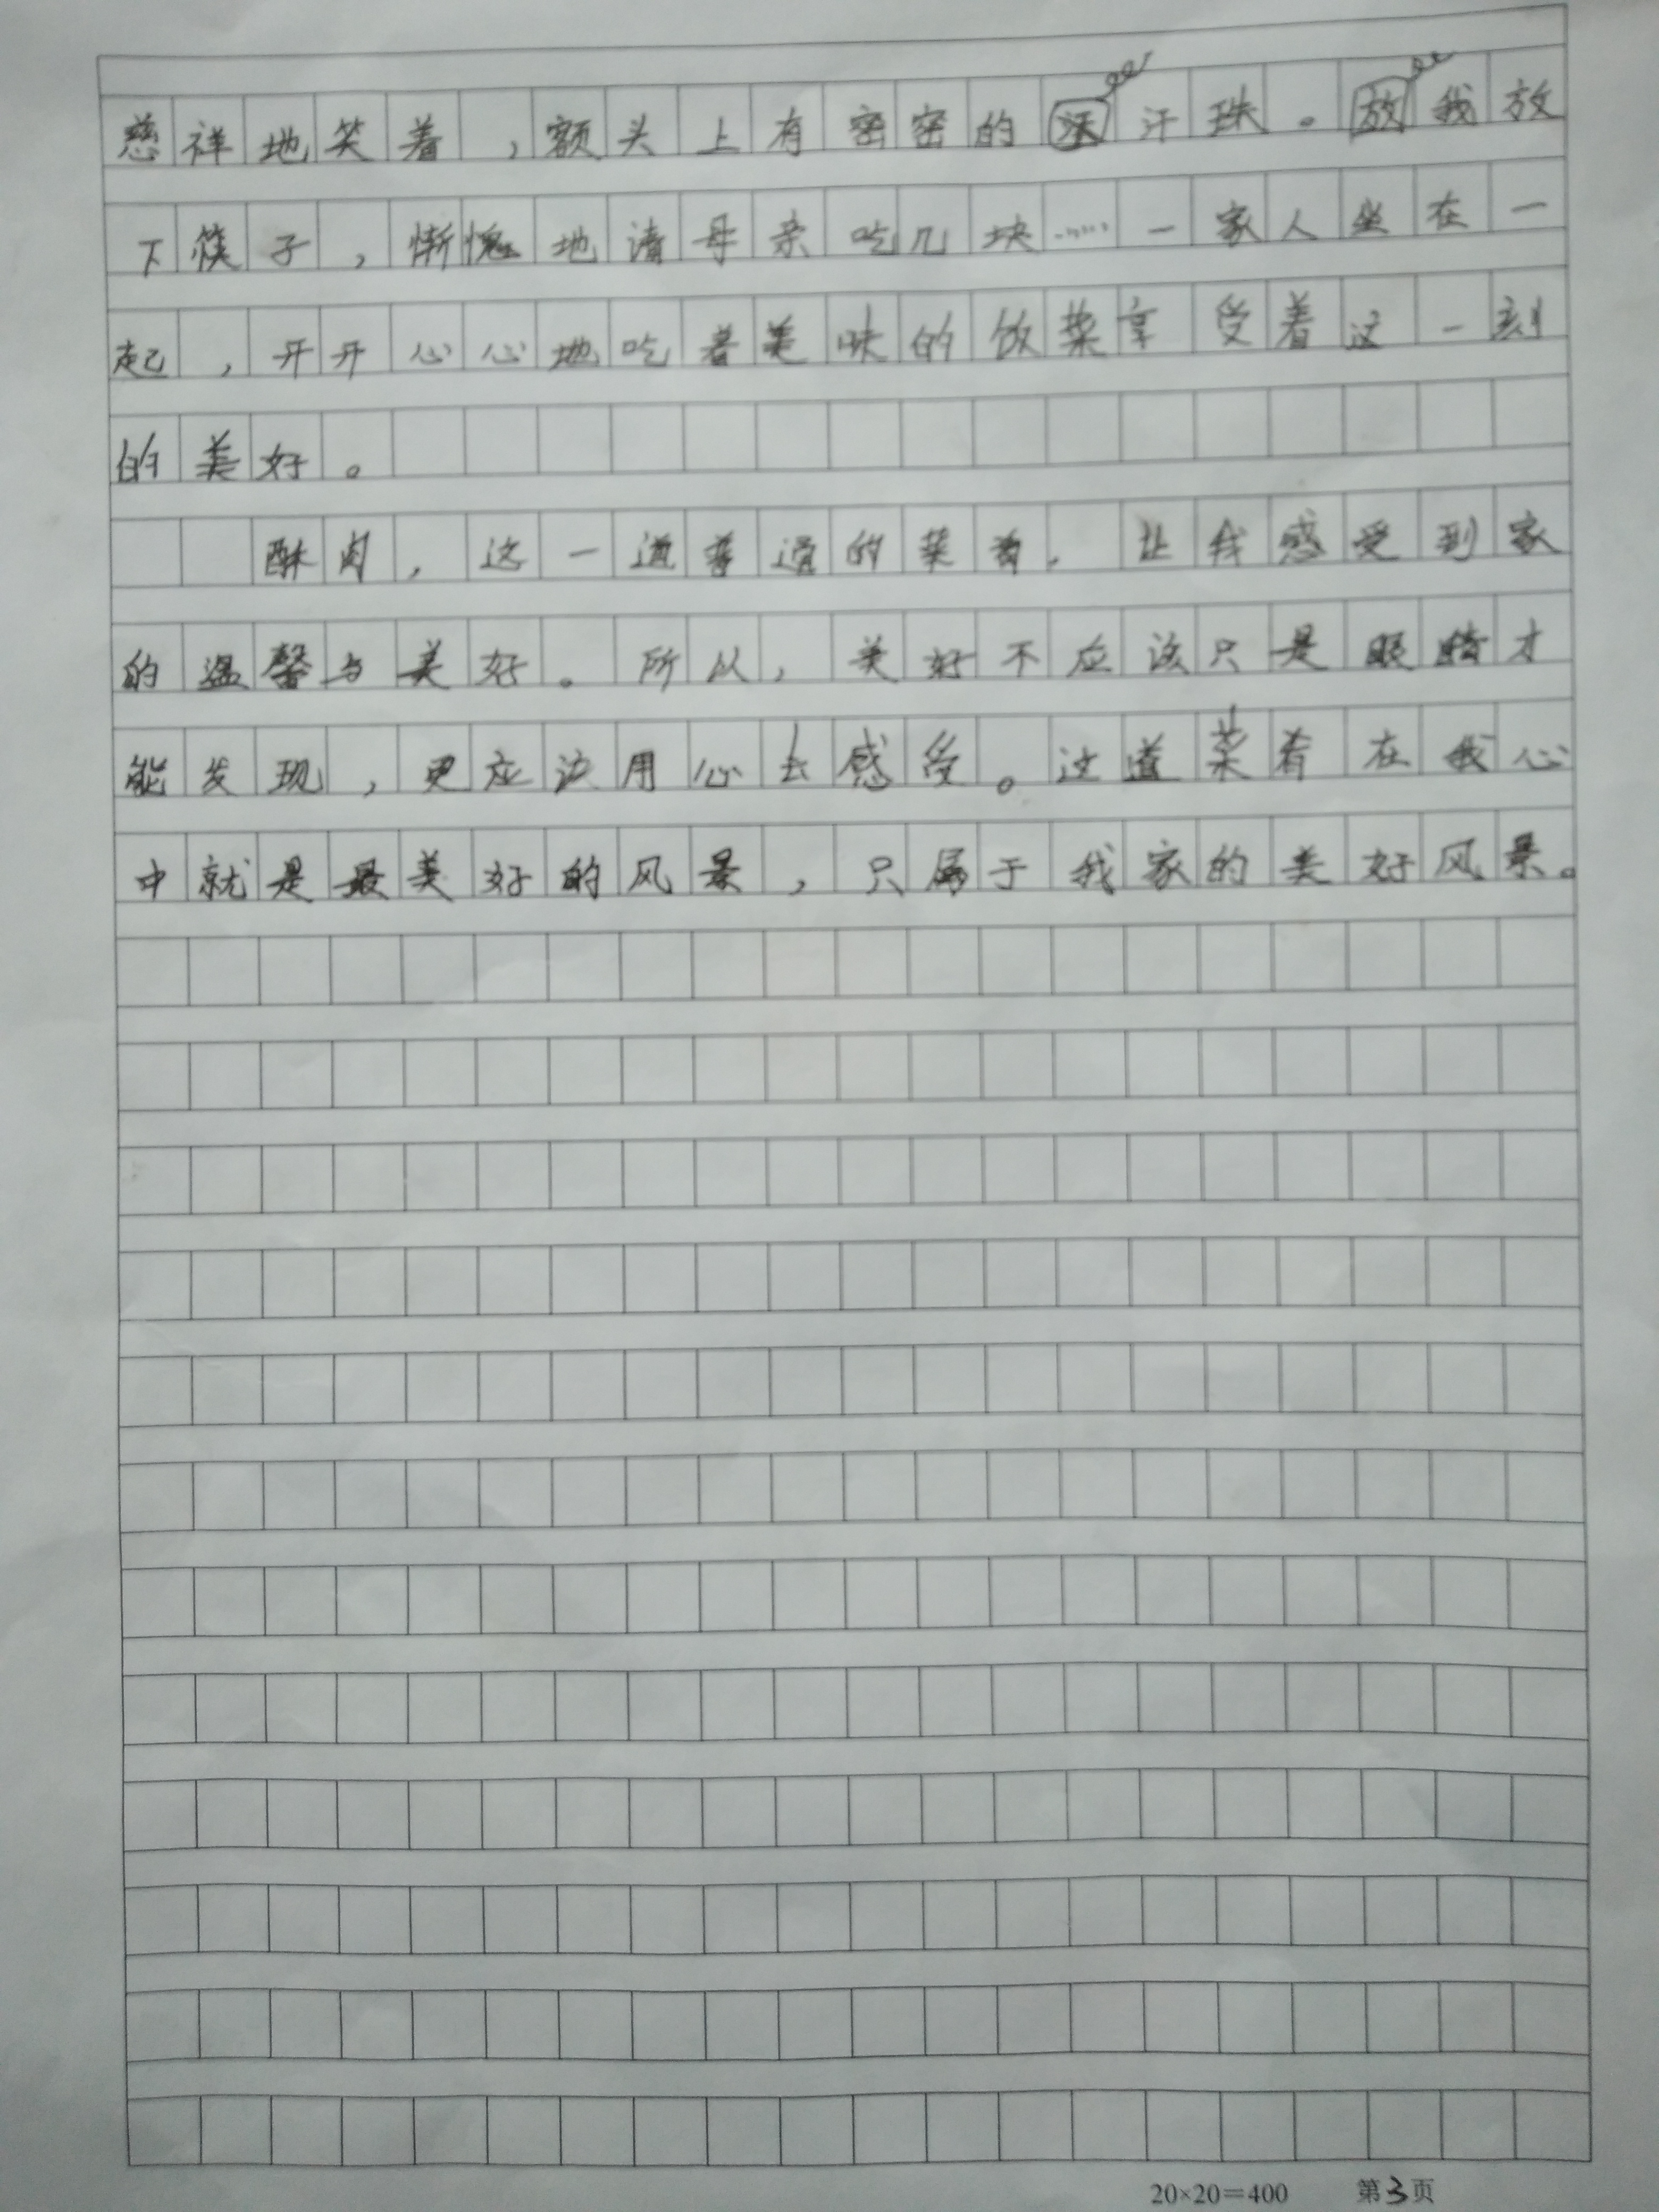 慈祥地笑着，额头上有密密的汗珠。我放
下筷子，惭愧地请母亲吃几块……一家人坐在一
起，开开心心地吃着美味的饭菜享受着这一刻
的美好。
酥肉，这一道普通的菜肴，让我感受到家
的温馨与美好。所以，美好不应该只是眼睛才
能发现，更应该用心去感受。这道菜肴在我心
中就是最美好的风景，只属于我家的美好风景。
20×20=400 第3页